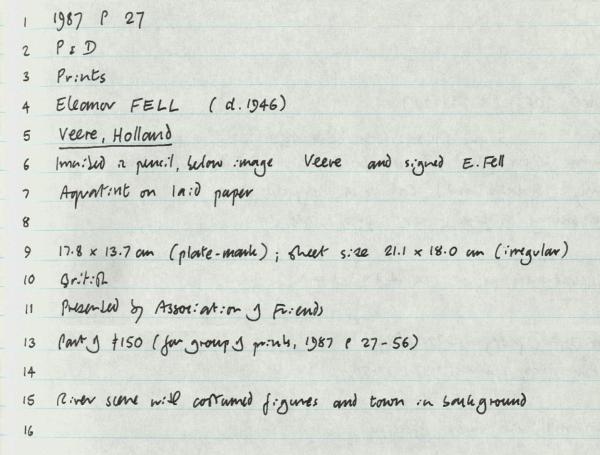 1 1987 P 27
2 P & D
3 Prints
4 Eleanor FELL (d. 1946)
5 Veere, Holland
6 Inscribed in pencil, below image Veere and signed E. Fell
7 Aquatint on laid paper
8
9 17.8 x 13.7 cm (plate-mark); sheet size 21.1 x 18.0 cm (irregular)
10 British
11 Presented by Association of Friends
13 Part of £150 (for group of prints, 1987 P 27-56)
14
15 River scene with costumed figures and town in background
16